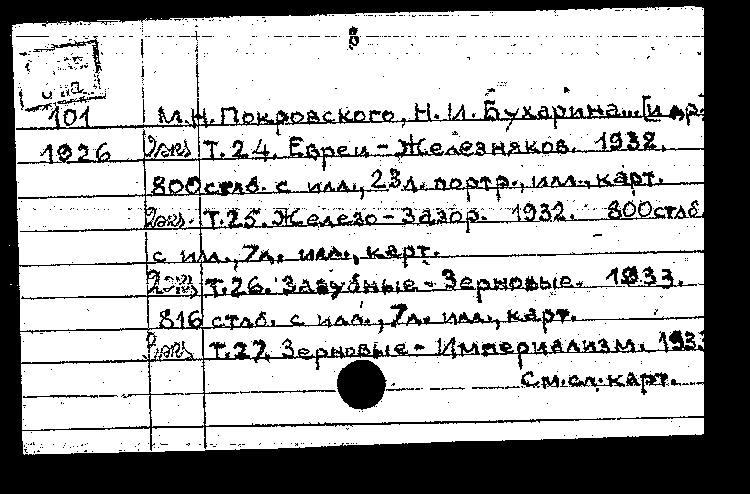 8
101 М.Н. Покровского, Н. И. Бухарина... [и др.
1926 Т. 24. Евреи - Железняков. 1932.
800 стлб. с илл., 23л. портр., илл., карт.
Т. 25. Железо - Зазор. 1932. 800 стлб.
с илл., 7л. илл., карт.
Т. 26. Зазубные - Зерновые. 1933.
816 стлб. с илл., 7л. илл., карт.
Т. 27. Зерновые - Империализм. 1933
См. сл. карт.